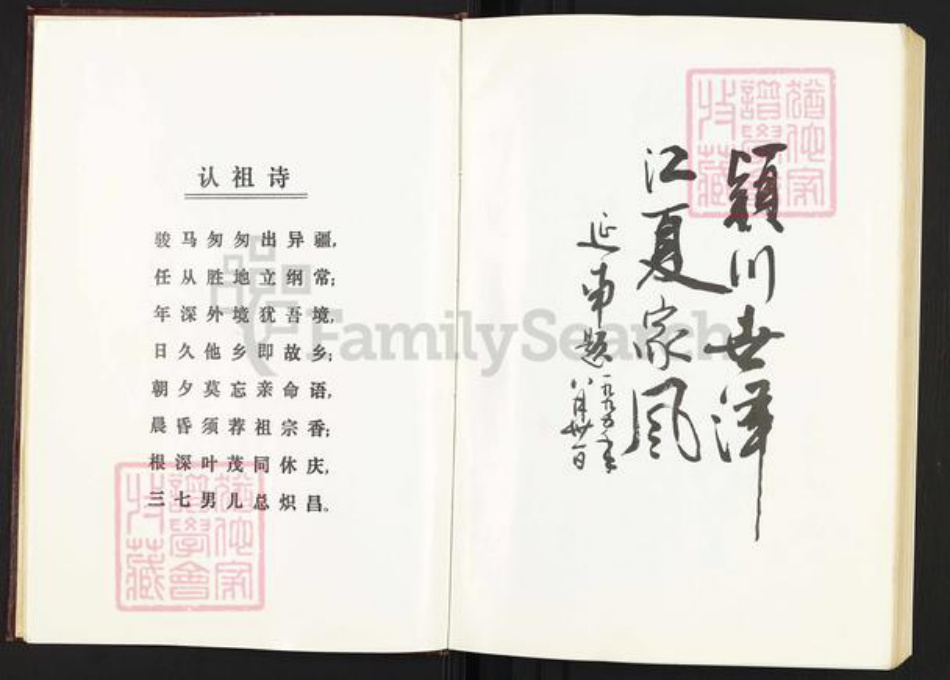 认祖诗
骏马匆匆出异疆，
任从胜地立纲常；
年深外境犹吾境，
日久他乡即故乡；
朝夕莫忘亲命语，
晨昏须荐祖宗香；
根深叶茂同休庆，
三七男儿总炽昌。
颖川世泽
江夏家风
延申题
一九九五年
八月卅一日
FamilySearch